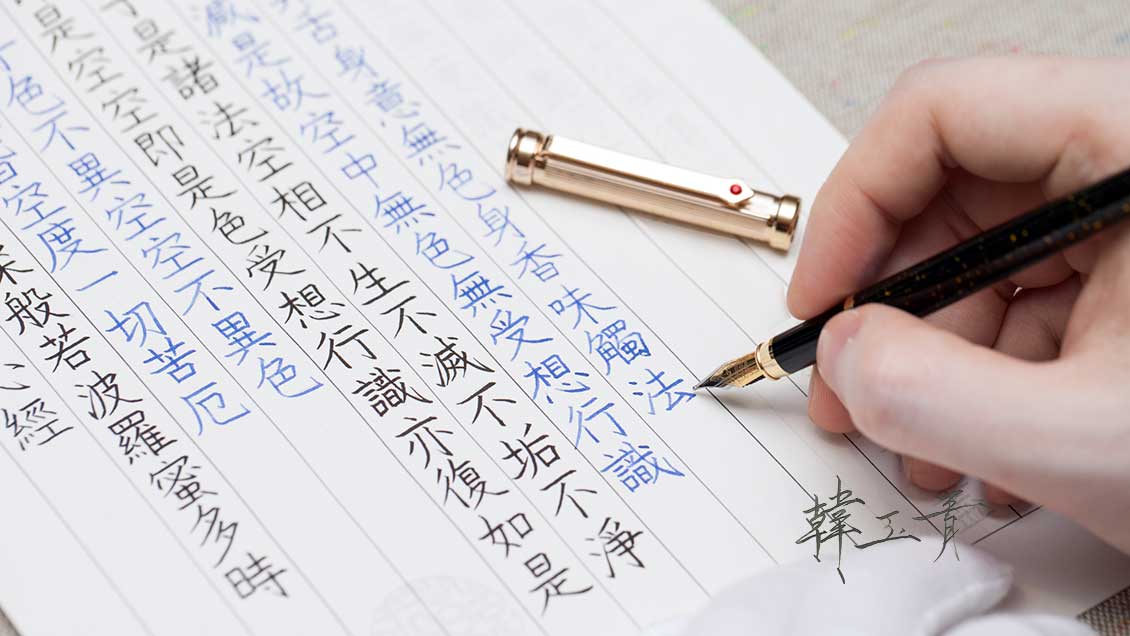 心經
般若波羅蜜多時
空度一切苦厄
色不異空空不異色
是空空即是色受想行識亦復如是
是諸法空相不生不滅不垢不淨
減是故空中無色無受想行識
舌身意無色身香味觸法
韓玉青